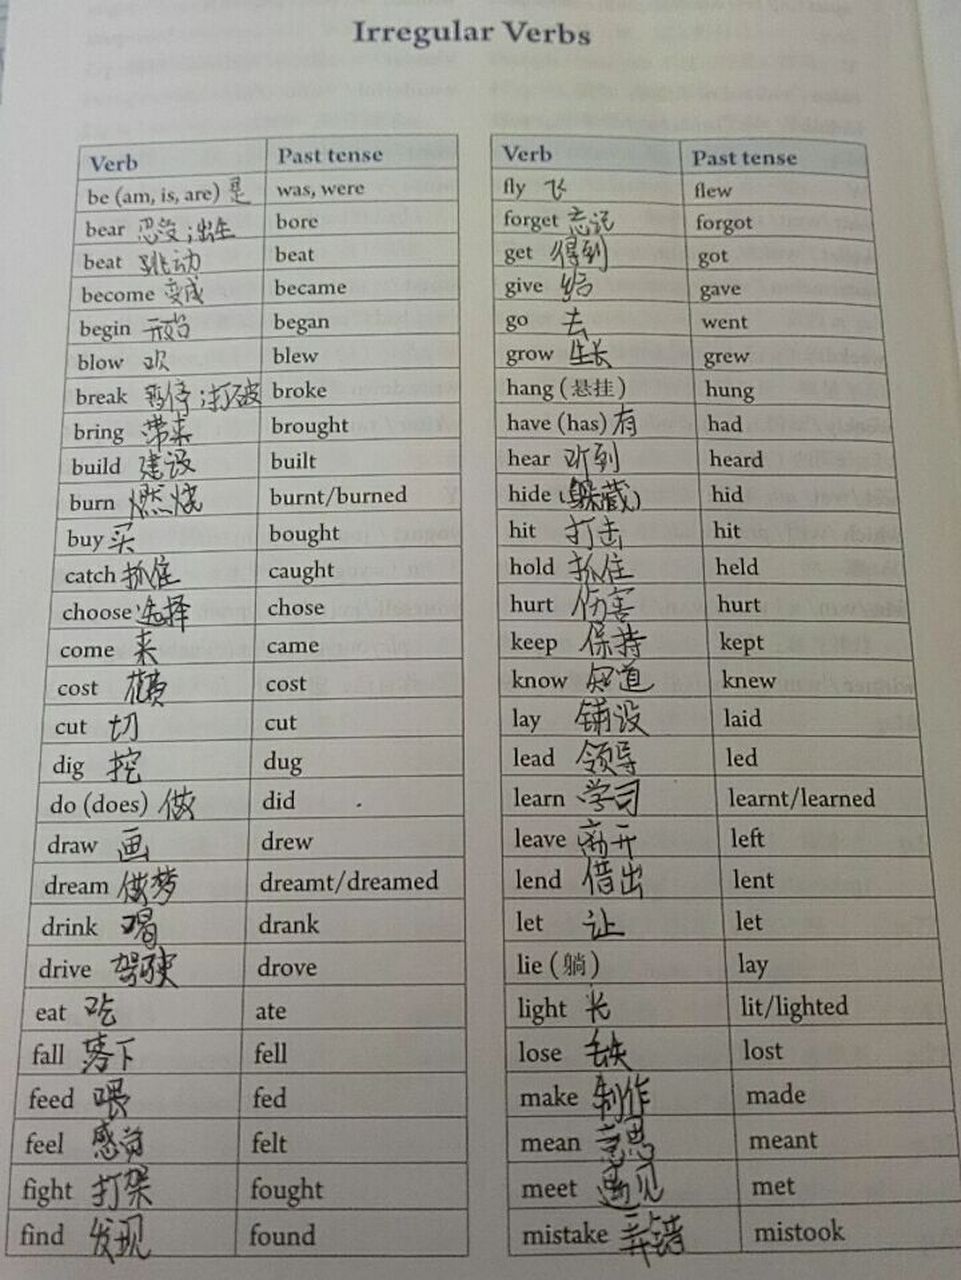 Irregular Verbs
Verb Past tense
be (am, is, are) 是 was, were
bear 忍受;出生 bore
beat 跳动 beat
become 变成 became
begin 开始 began
blow 吹 blew
break 暂停;打破 broke
bring 带来 brought
build 建设 built
burn 燃烧 burnt/burned
buy 买 bought
catch 抓住 caught
choose 选择 chose
come 来 came
cost 花费 cost
cut 切 cut
dig 挖 dug
do (does) 做 did
draw 画 drew
dream 做梦 dreamt/dreamed
drink 喝 drank
drive 驾驶 drove
eat 吃 ate
fall 落下 fell
feed 喂 fed
feel 感觉 felt
fight 打架 fought
find 发现 found
Verb Past tense
fly 飞 flew
forget 忘记 forgot
get 得到 got
give 给 gave
go 去 went
grow 生长 grew
hang (悬挂) hung
have (has) 有 had
hear 听到 heard
hide (躲藏) hid
hit 打击 hit
hold 抓住 held
hurt 伤害 hurt
keep 保持 kept
know 知道 knew
lay 铺设 laid
lead 领导 led
learn 学习 learnt/learned
leave 离开 left
lend 借出 lent
let 让 let
lie (躺) lay
light lit/lighted
lose 丢失 lost
make 制作 made
mean 意思 meant
meet 遇见 met
mistake 弄错 mistook